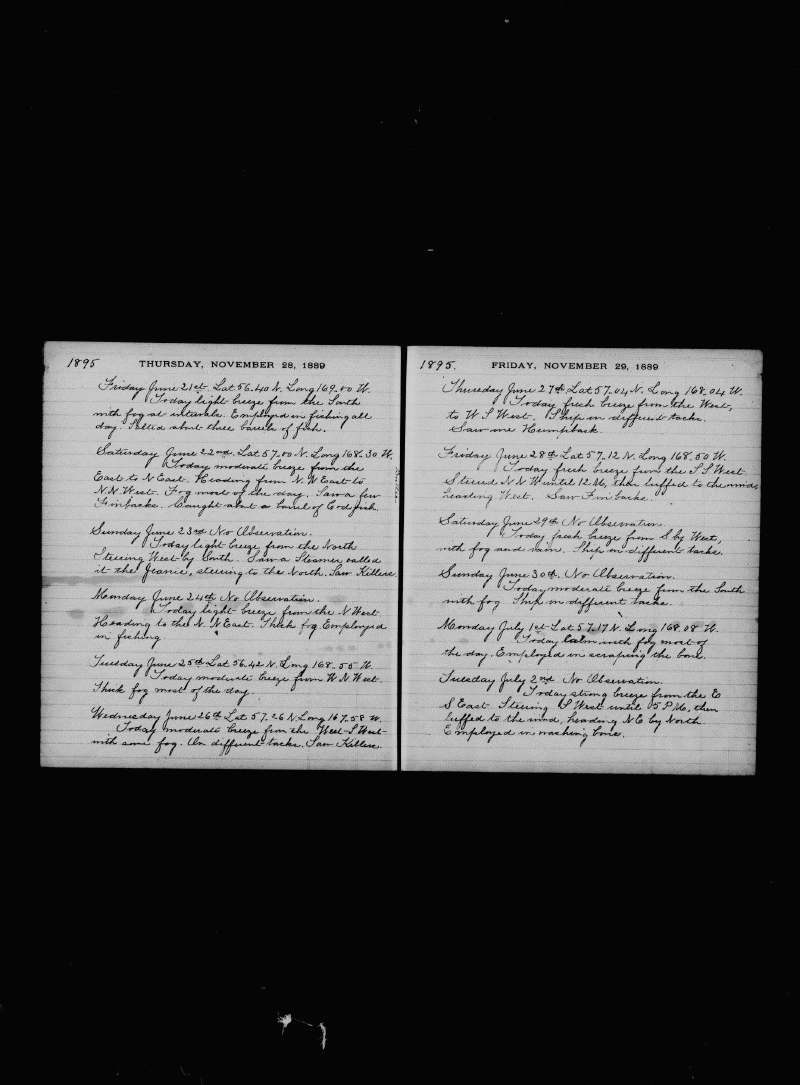 1895
THURSDAY, NOVEMBER 28, 1889
Friday June 21st Lat 56-40 N. Long 169-00 W.
Today light breeze from the South
with fog at intervals. Employed in fishing all
day. Salted about three barrels of fish.
Saturday June 22nd. Lat 57.00 N. Long 168.30 W.
Today moderate breeze from the
East to N East. Heading from N.N East to
N.N. West. Fog most of the day. Saw a few
Finbacks. Caught about a barrel of Codfish.
Sunday June 23rd No Observation.
Today light breeze from the North
Steering West by South. Saw a Steamer called
it the Jeanie, steering to the North. Saw Killers
Monday June 24th No Observation.
Today light breeze from the N West.
Heading to the N. N East. Thick fog. Employed
in fishing
Tuesday June 25th Lat 56.42 N. Long 168..55 W.
Today moderate breeze from W N West.
Thick fog most of the day.
Wednesday June 26th Lat 57.26 N. Long 167.58 W.
Today moderate breeze from the West-S West
with some fog. On different tacks. Saw Killers.
1895.
FRIDAY, NOVEMBER 29, 1889
Thursday June 27th Lat 57.04 N. Long 168.04 W.
Today fresh breeze from the West,
to W. S West. Ship on different tacks.
Saw one Humpback.
Friday June 28th Lat 57.12 N. Long 168.50 W.
Today fresh breeze from the S S West
Steered N N W until 12 M, then luffed to the wind,
heading West. Saw Finbacks.
Saturday June 29th No Observation.
Today fresh breeze from S by West,
with fog and rain. Ship on different tacks.
Sunday June 30th. No Observation.
Today moderate breeze from the South
with fog. Ship on different tacks.
Monday July 1st Lat 57.17 N. Long 168.08 W.
Today calm with fog most of
the day. Employed in scraping the bone.
Tuesday July 2nd No Observation.
Today strong breeze from the E
S East. Steering S West until 5 P M, then
luffed to the wind, heading N E by North.
Employed in washing bone.